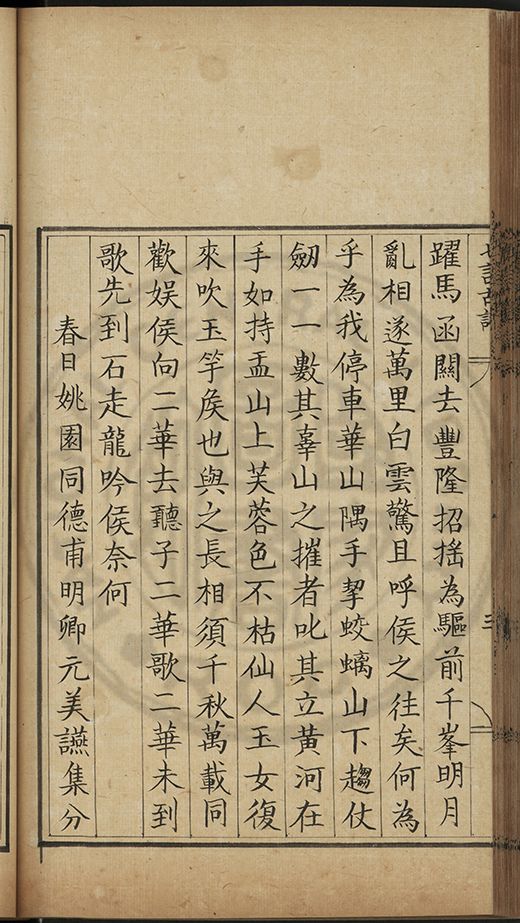 七言古詩
三
躍馬函關去豐隆招搖為驅前千峯明月
亂相逐萬里白雲驚且呼侯之往矣何為
乎為我停車華山隅手挈蛟螭山下趨仗
劒一一數其辜山之摧者叱其立黃河在
手如持盂山上芙蓉色不枯仙人玉女復
來吹玉竽侯也與之長相須千秋萬載同
歡娛侯向二華去聽子二華歌二華未到
歌先到石走龍吟侯奈何
春日姚園同德甫明卿元美讌集分